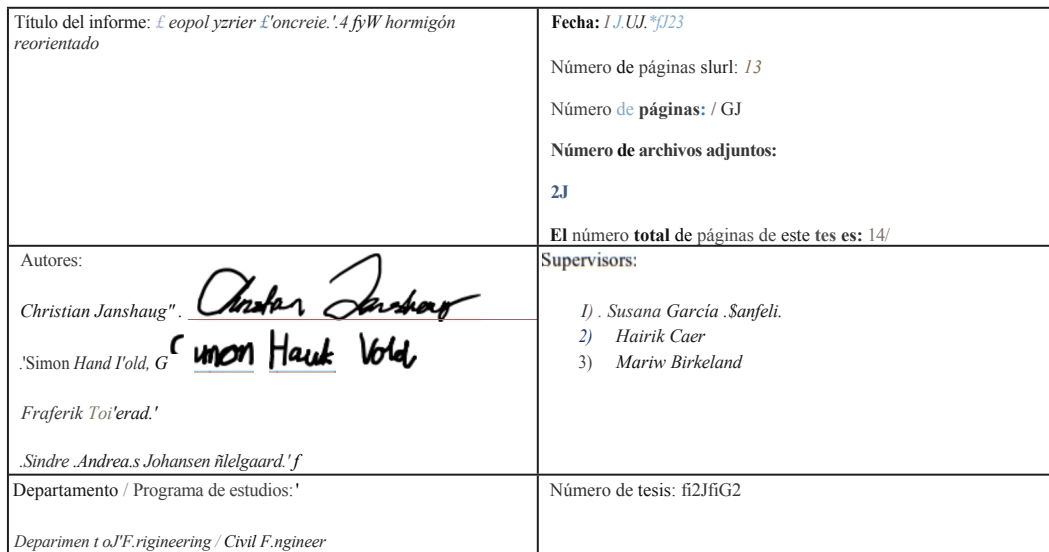 Título del informe: £ eopol yzrier £'oncreie.'.4 fyW hormigón
reorientado
Fecha: I J.UJ.*fJ23
Número de páginas slurl: 13
Número de páginas: / GJ
Número de archivos adjuntos:
2J
El número total de páginas de este tes es: 14/
Autores:
Christian Janshaug" . Christian Janshaug
.'Simon Hand I'old, G Simon Hauk Vold
Fraferik Toi'erad.'
.Sindre .Andrea.s Johansen ñlelgaard.' f
Supervisors:
I) . Susana García .$anfeli.
2) Hairik Caer
3) Mariw Birkeland
Departamento / Programa de estudios: '
Deparimen t oJ'F.rigineering / Civil F.ngineer
Número de tesis: fi2JfiG2